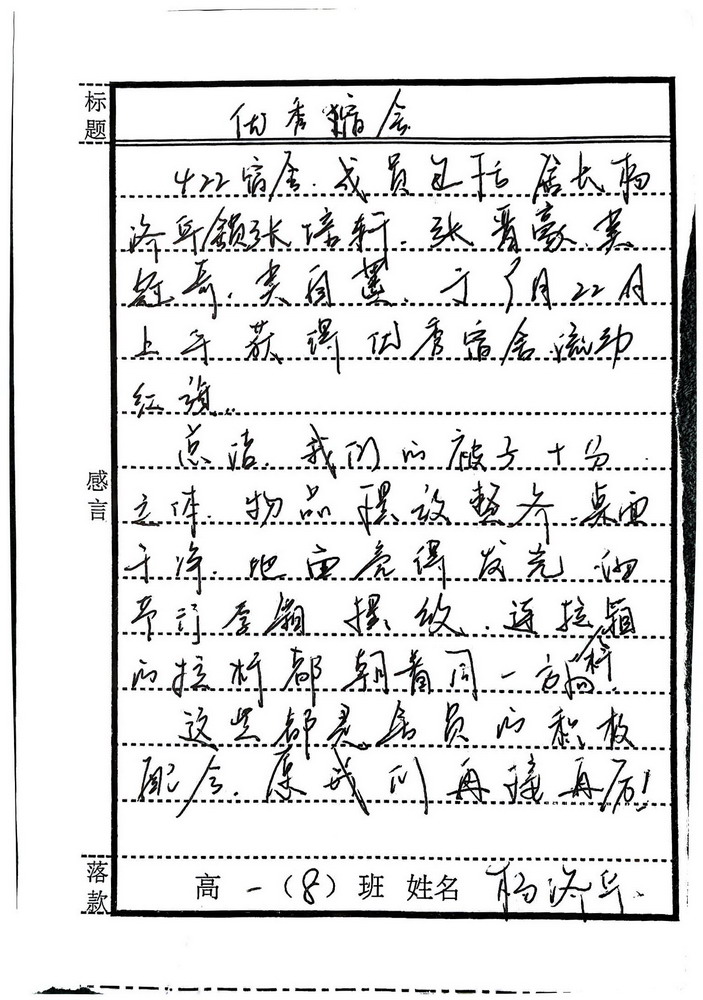 标题
优秀宿舍
422宿舍.成员包括 居长杨
济华锁张培轩.张晋豪.娄
哥.娄 于 月22日
上午获得优秀宿舍流动
红旗..
总结.我们的被子十分
立体.物品摆放整齐.桌面
干净.地面亮得发光 细
节行李箱摆放.连拉箱
的拉杆都朝着同一方向.
感言
这些都是居员的积极
配合.愿我们再接再厉!
落款
高一(8)班 姓名 杨济华.